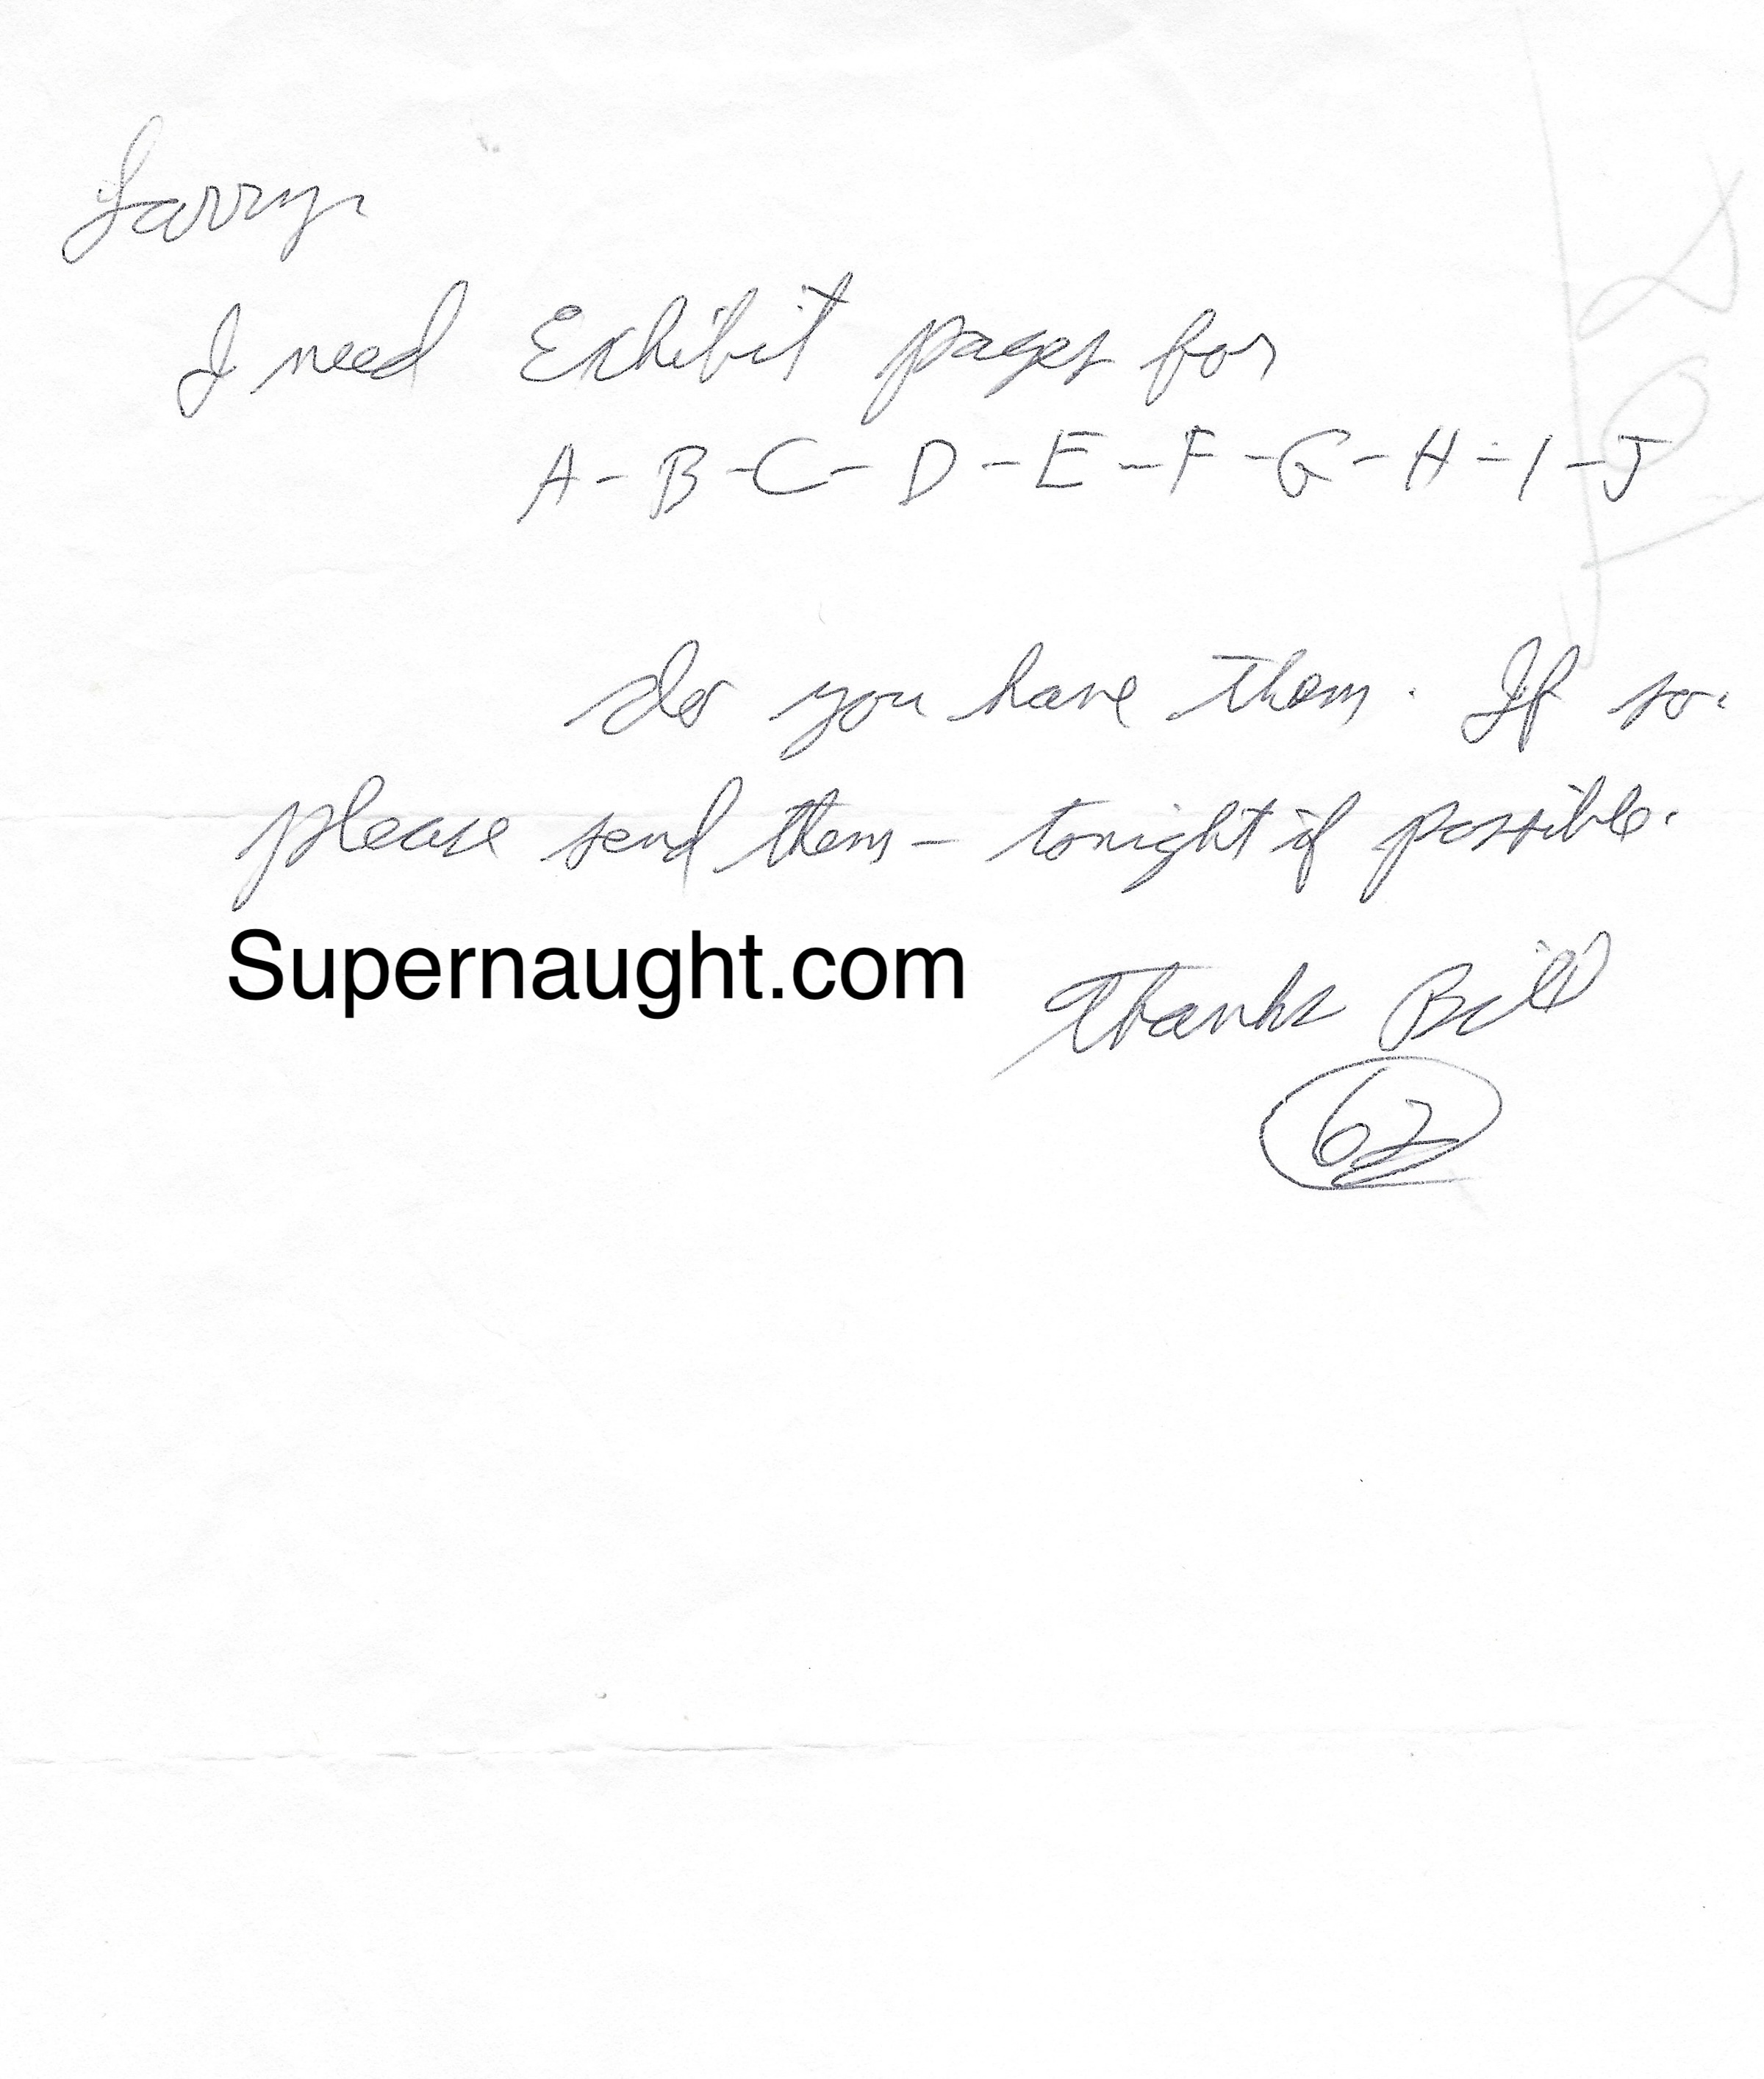 Larry
I need Exhibit pages for
A - B - C - D - E - F - G - H - I - J
do you have them. If so.
please send them - tonight if possible.
Supernaught.com
Thanks Bill
62